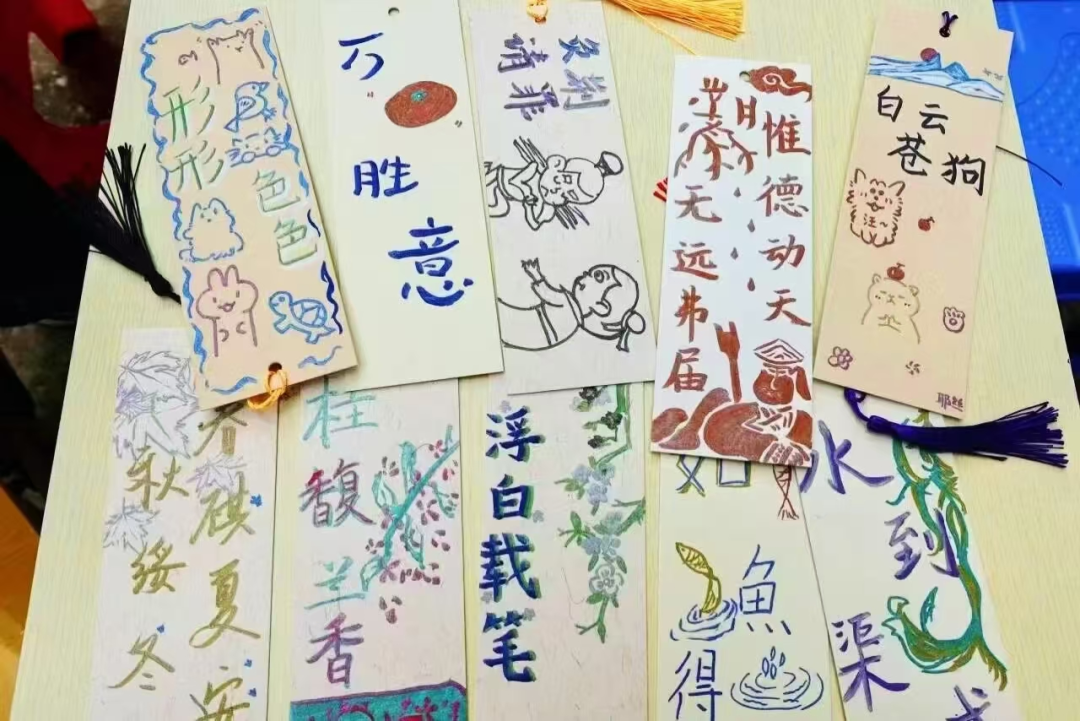 形形
色色
万
胜
意
负荆
请罪
惟德动天
无远弗届
白云
苍狗
汪~
春祺夏安
秋绥冬
桂馥兰香
浮白载笔
如
魚
得
水到渠